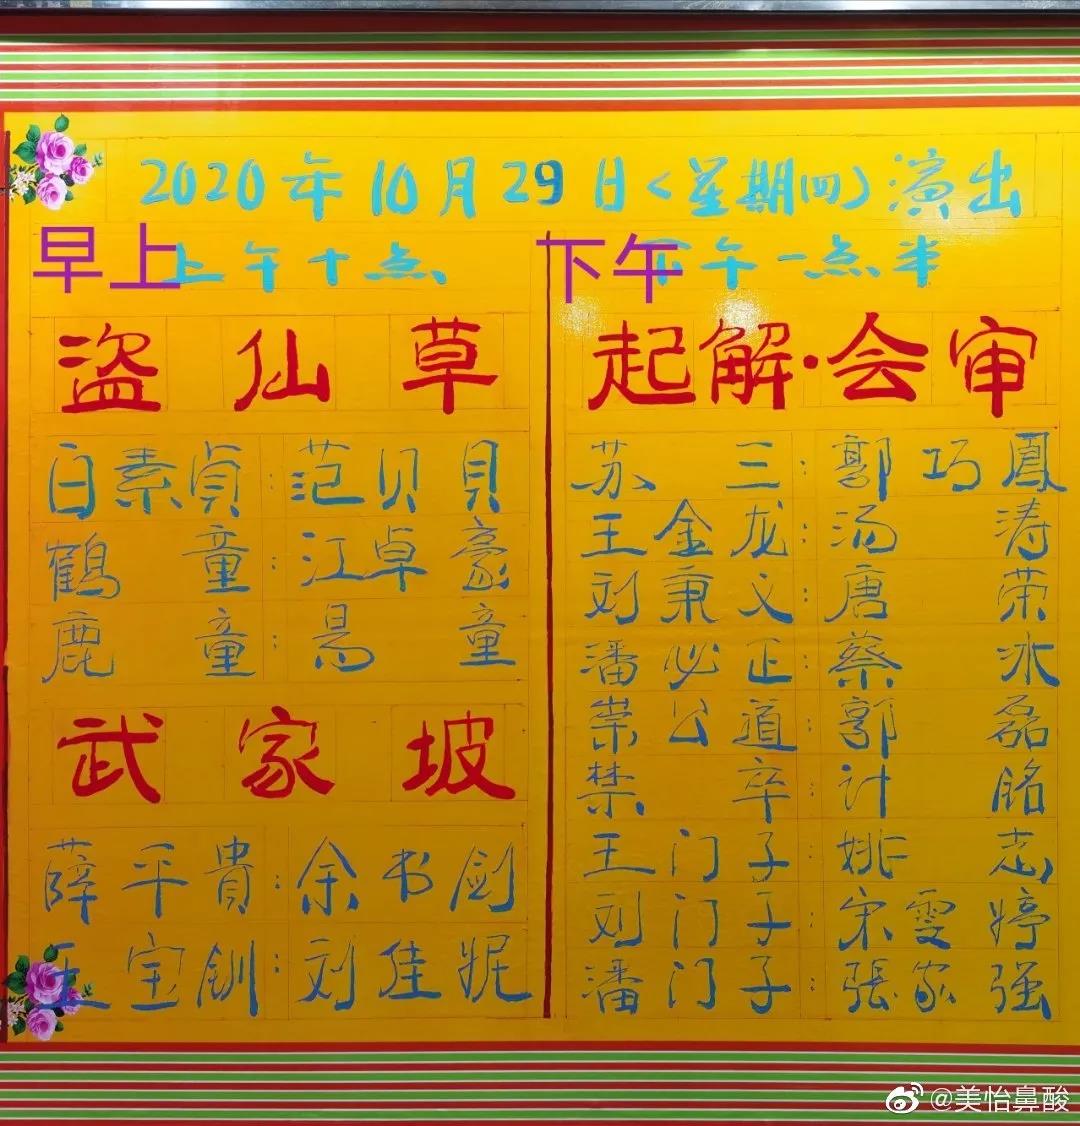 2020年10月29日(星期四)演出
早上
上午十点
盗仙草
白素贞:范贝貝
鹤童:江卓豪
鹿童:易童
武家坡
薛平貴:余书剑
王宝钏:刘佳妮
下午
下午一点半
起解·会审
苏三:郭巧鳳
王金龙:汤涛
刘秉义:唐荣
潘必正:蔡冰
崇公道:郭磊
禁卒:计铭
王门子:姚志
刘门子:宋雯婷
潘门子:張家强
@美怡鼻酸